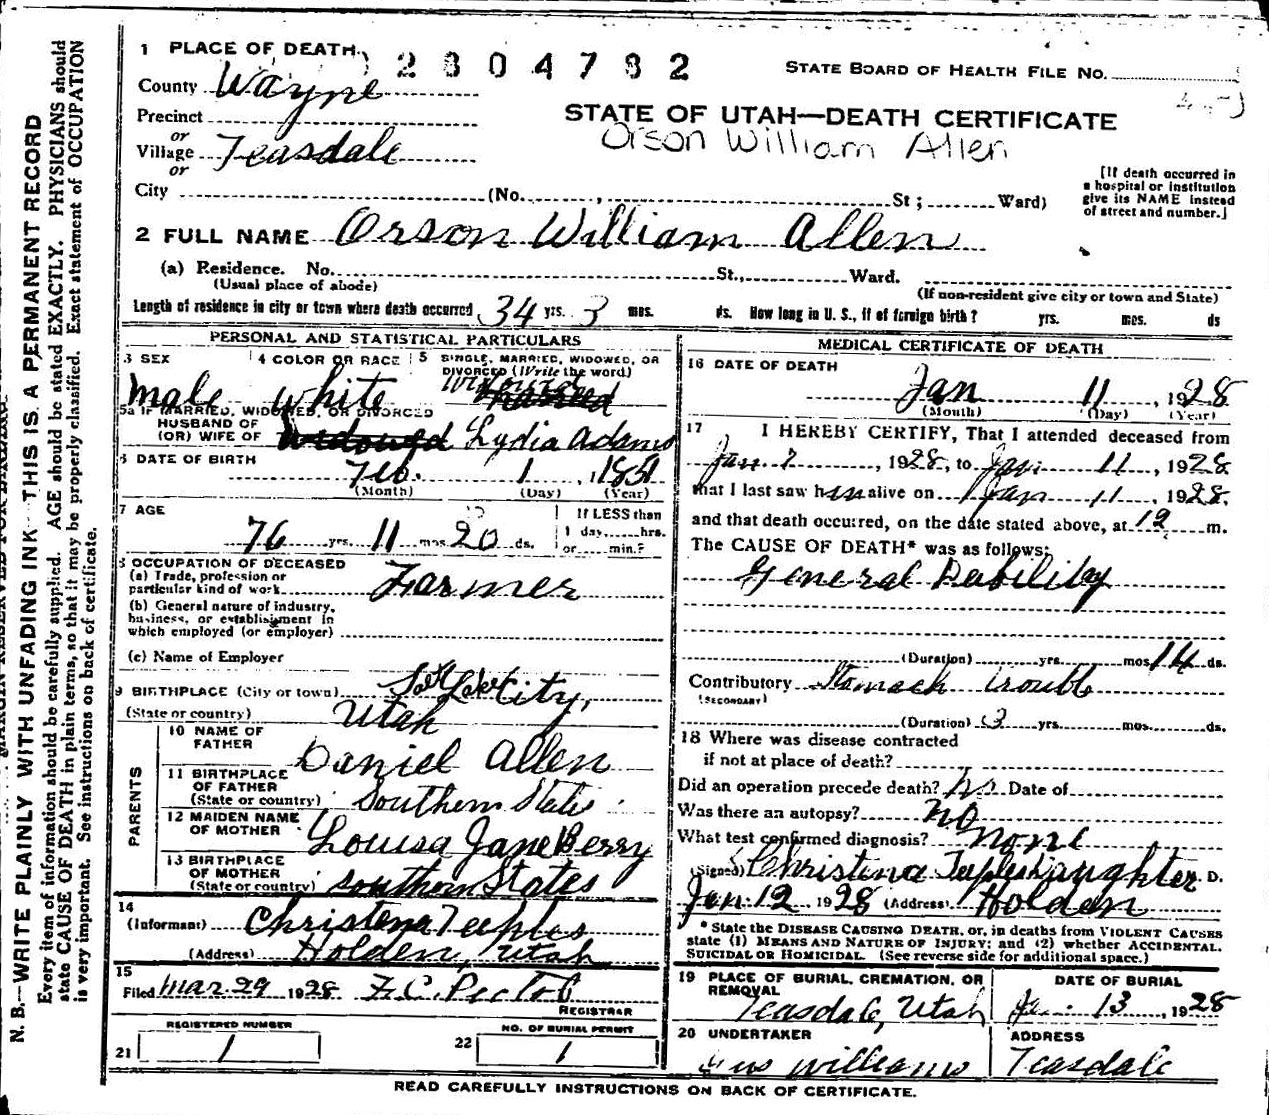 1 PLACE OF DEATH 2304782
STATE BOARD OF HEALTH FILE NO.
County Wayne
STATE OF UTAH—DEATH CERTIFICATE
Precinct
Orson William Allen
or
Village Teasdale
or
[If death occurred in a hospital or institution give its NAME instead of street and number.]
City (No. , St; Ward)
2 FULL NAME Orson William Allen
(a) Residence. No. St., Ward.
(Usual place of abode)
(If non-resident give city or town and State)
Length of residence in city or town where death occurred 34 yrs. 3 mos. ds. How long in U. S., if of foreign birth? yrs. mos. ds
PERSONAL AND STATISTICAL PARTICULARS
3 SEX 4 COLOR OR RACE 5 SINGLE, MARRIED, WIDOWED, OR DIVORCED (Write the word)
male white Widowed
5a IF MARRIED, WIDOWED, OR DIVORCED
HUSBAND OF
(OR) WIFE OF Widowed Lydia Adams
6 DATE OF BIRTH
Feb. 1, 1851
(Month) (Day) (Year)
7 AGE If LESS than
76 yrs. 11 mos. 20 ds. 1 day,......hrs.
or......min.?
8 OCCUPATION OF DECEASED
(a) Trade, profession or
particular kind of work Farmer
(b) General nature of industry,
business, or establishment in
which employed (or employer)
(c) Name of Employer
9 BIRTHPLACE (City or town) Salt Lake City,
(State or country) Utah
PARENTS
10 NAME OF
FATHER Daniel Allen
11 BIRTHPLACE
OF FATHER
(State or country) Southern State
12 MAIDEN NAME
OF MOTHER Louisa Jane Berry
13 BIRTHPLACE
OF MOTHER
(State or country) Southern States
14
(Informant) Christena Teeples
(Address) Holden, Utah
15
Filed Mar. 29 1928 REGISTRAR
REGISTERED NUMBER NO. OF BURIAL PERMIT
21 1 22 1
MEDICAL CERTIFICATE OF DEATH
16 DATE OF DEATH
Jan 11, 1928
(Month) (Day) (Year)
17 I HEREBY CERTIFY, That I attended deceased from
Jan. 7, 1928, to Jan. 11, 1928
that I last saw him alive on Jan 11, 1928
and that death occurred, on the date stated above, at 12 m.
The CAUSE OF DEATH* was as follows:
General Debility
(Duration) yrs. mos. 14 ds.
Contributory Stomach trouble
(SECONDARY)
(Duration) 3 yrs. mos. ds.
18 Where was disease contracted
if not at place of death?
Did an operation precede death? no Date of
Was there an autopsy? no
What test confirmed diagnosis? none
(Signed) Christina Teeples Daughter D.
Jan. 12 1928 (Address) Holden
* State the DISEASE CAUSING DEATH, or, in deaths from VIOLENT CAUSES
state (1) MEANS AND NATURE OF INJURY; and (2) whether ACCIDENTAL,
SUICIDAL OR HOMICIDAL. (See reverse side for additional space.)
19 PLACE OF BURIAL, CREMATION, OR REMOVAL DATE OF BURIAL
Teasdale, Utah Jan. 13, 1928
20 UNDERTAKER ADDRESS
Williams Teasdale
READ CAREFULLY INSTRUCTIONS ON BACK OF CERTIFICATE.
N. B.—WRITE PLAINLY WITH UNFADING INK—THIS IS A PERMANENT RECORD
Every item of information should be carefully supplied. AGE should be stated EXACTLY. PHYSICIANS should
state CAUSE OF DEATH in plain terms, so that it may be properly classified. Exact statement of OCCUPATION
is very important. See instructions on back of certificate.